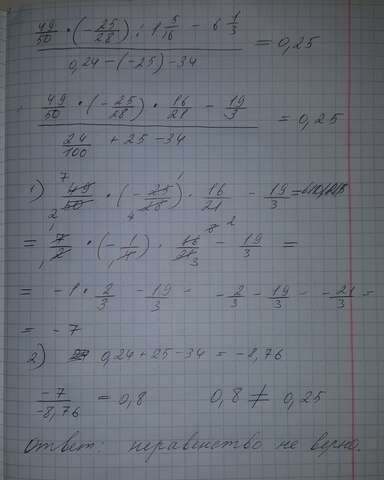 49/50 · (-25/28) : 1 5/16 - 6 1/3
= 0,25
0,24 - (-25) - 34
49/50 · (-25/28) · 16/21 - 19/3
= 0,25
24/100 + 25 - 34
1) 49/50 · (-25/28) · 16/21 - 19/3 =
= 7/2 · (-1/4) · 16/21 - 19/3 =
= -1 · 2/3 - 19/3 = -2/3 - 19/3 = -21/3 =
= -7
2) 0,24 + 25 - 34 = -8,76
-7/-8,76 = 0,8 0,8 ≠ 0,25
Ответ: неравенство не верно.